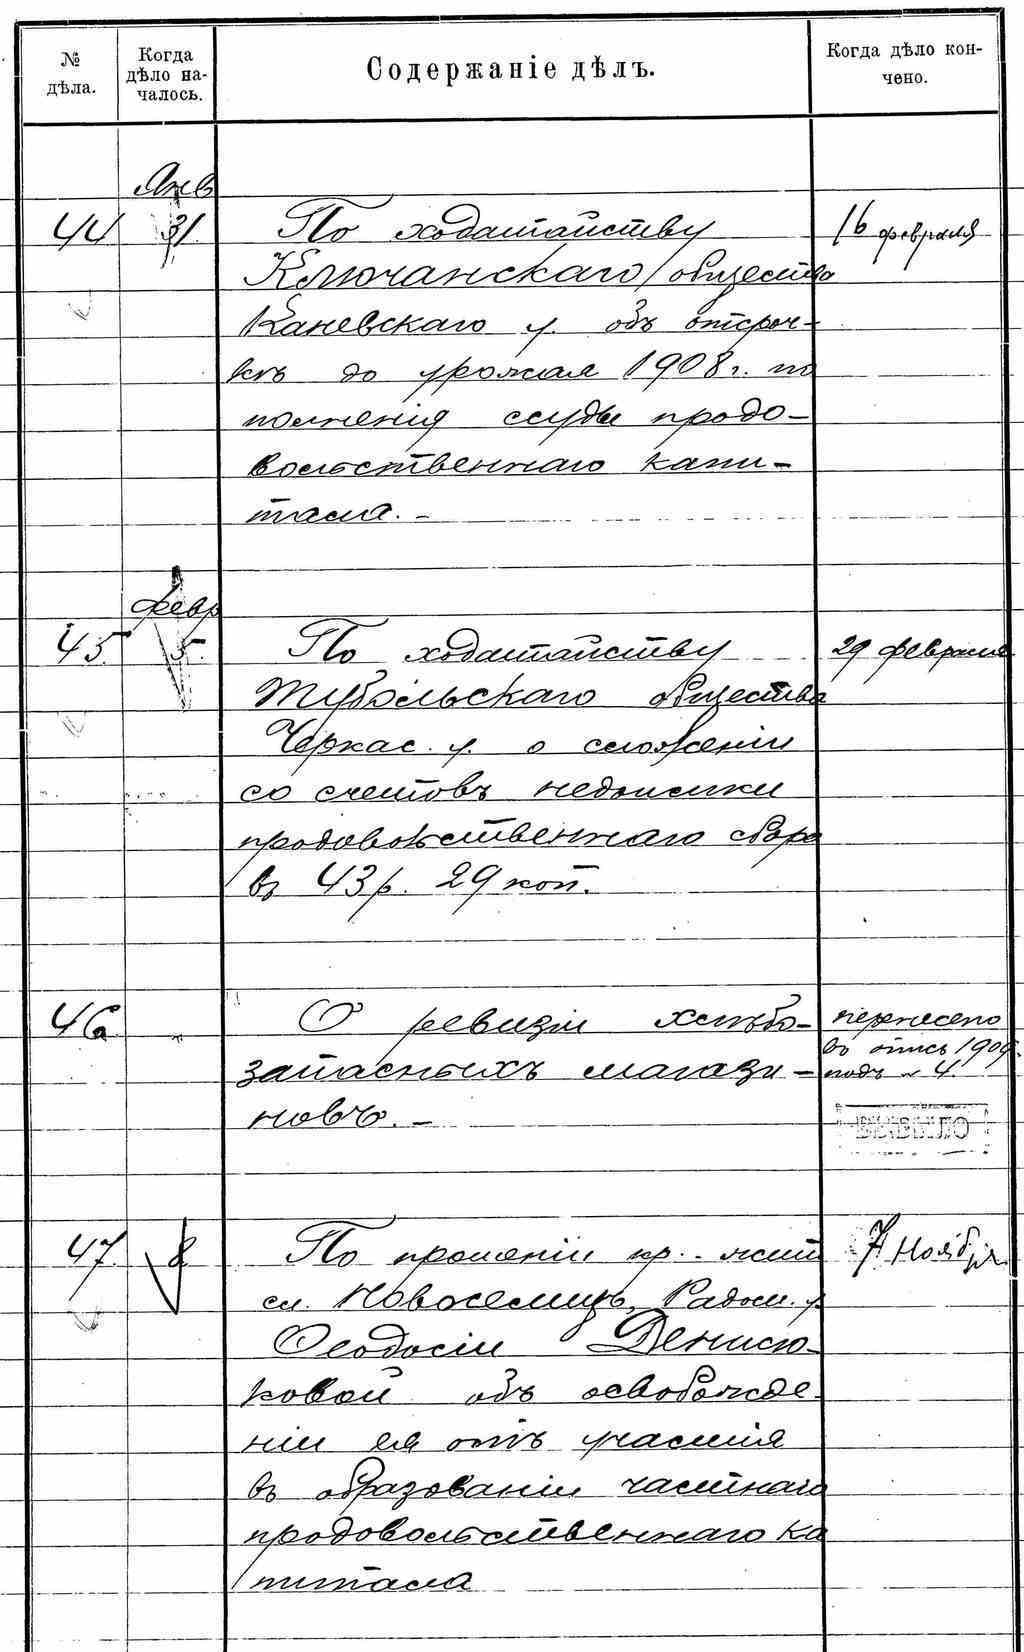 № дѣла.
Когда дѣло на-
чалось.
Содержаніе дѣлъ.
Когда дѣло кон-
чено.
Янв
44 31 По ходатайству 16 февраля
Ключанскаго общества
Каневскаго у. объ отсроч-
кѣ до урожая 1908 г. по
полненія ссуды продо-
вольственнаго капи-
тала. -
февр
45 5 По ходатайству 29 февраля
Тубольскаго общества
Черкас. у. о сложеніи
со счетовъ недоимки
продовольственнаго сбора
въ 43 р. 29 коп.
46 " О ревизіи хлѣбо- перенесено
запасныхъ магази- въ опись 1909
новъ. - подъ № 4.
ВЫБЫЛО
47. 8 По прошенію кр. жит 7 Ноября
сл. Новоселицъ, Радом. у.
Ѳеодосіи Денисю-
ковой объ освобожде-
ніи ея отъ участія
въ образованіи частнаго
продовольственнаго ка
питала